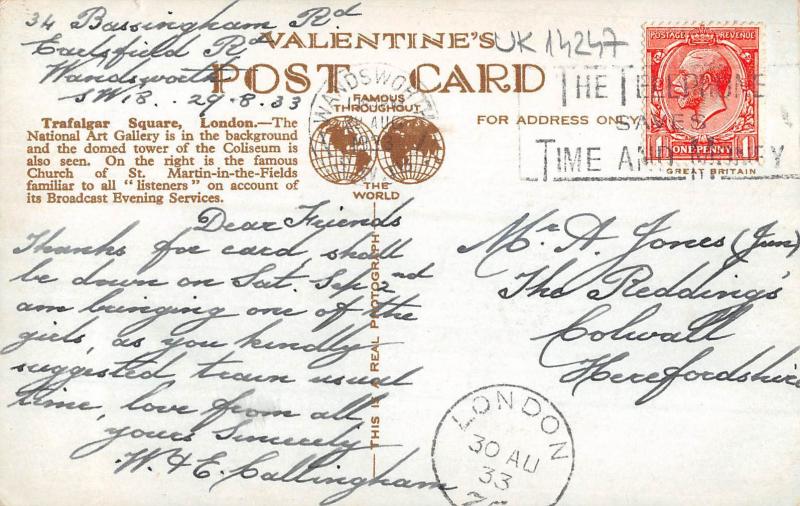 34 Bassingham Rd
Earlsfield Rd
Wandsworth
SW18.. 29.8.33
VALENTINE'S
POST CARD
UK14247
FAMOUS
THROUGHOUT
THE
WORLD
FOR ADDRESS ONLY
WANDSWORTH
THE TELEPHONE
SAVES
TIME AND MONEY
POSTAGE REVENUE
1 ONE PENNY 1
GREAT BRITAIN
Trafalgar Square, London.—The
National Art Gallery is in the background
and the domed tower of the Coliseum is
also seen. On the right is the famous
Church of St. Martin-in-the-Fields
familiar to all "listeners" on account of
its Broadcast Evening Services.
Dear Friends
Thanks for card shall
be down on Sat. Sep 2nd
am bringing one of the
girls, as you kindly
suggested train usual
time, love from all
yours Sincerely
W. & E. Callingham
THIS IS A REAL PHOTOGRAPH
Mr A. Jones (Jun)
The Reddings
Colwall
Herefordshire
LONDON
30 AU
33